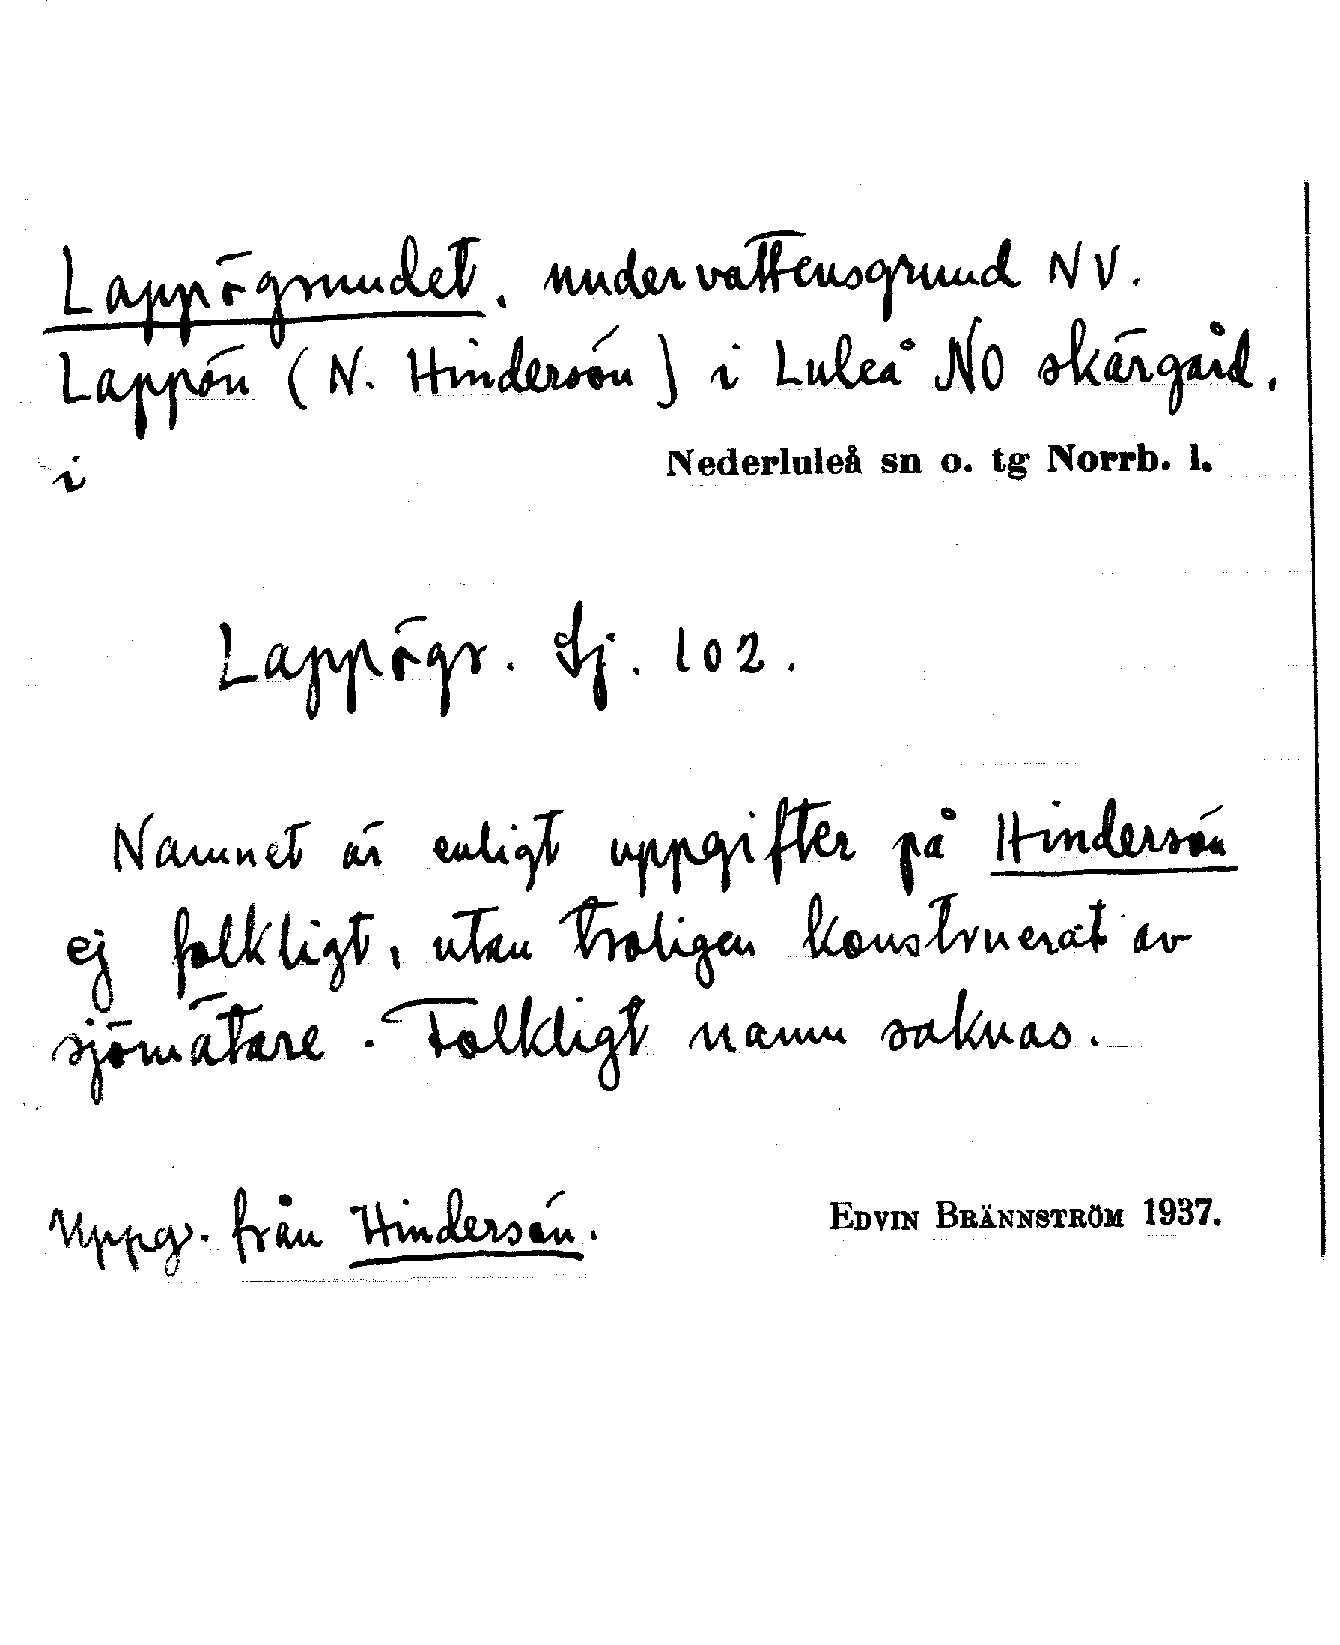 Lappögrundet, undervattensgrund NV.
Lappön (N. Hindersön) i Luleå NO skärgård,
i Nederluleå sn o. tg Norrb. l.
Lappögr. Sj. 102.
Namnet är enligt uppgifter på Hindersön
ej folkligt, utan troligen konstruerat av
sjömätare. Folkligt namn saknas.
Uppg. från Hindersön. EDVIN BRÄNNSTRÖM 1937.